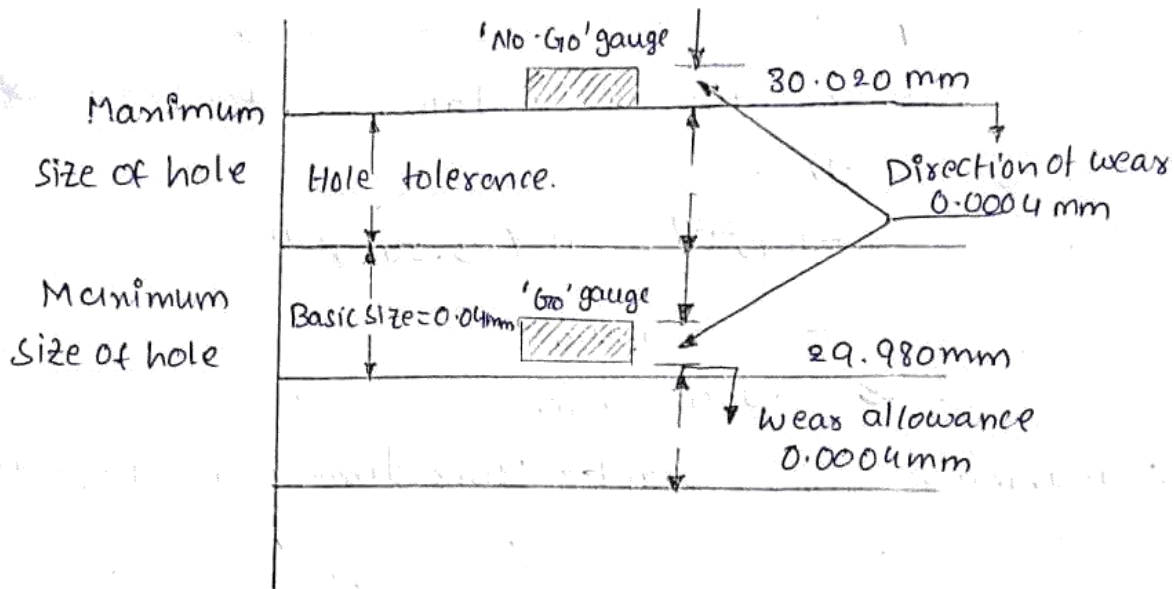 'No-Go' gauge
30.020 mm
Maximum
size of hole
Hole tolerence.
Direction of wear
0.0004 mm
Maximum
size of hole
Basic size=0.04mm
'Go' gauge
29.980mm
Wear allowance
0.0004mm